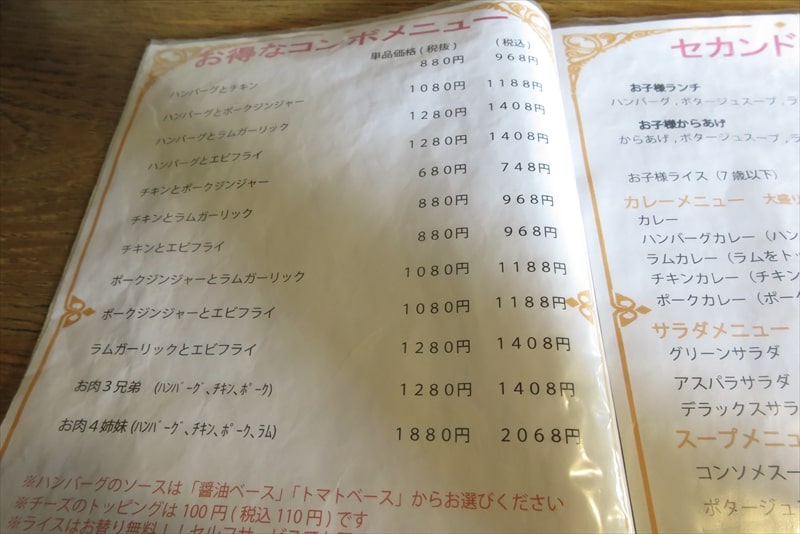 お得なコンボメニュー
単品価格(税抜) (税込)
ハンバーグとチキン 880円 968円
ハンバーグとポークジンジャー 1080円 1188円
ハンバーグとラムガーリック 1280円 1408円
ハンバーグとエビフライ 1280円 1408円
チキンとポークジンジャー 680円 748円
チキンとラムガーリック 880円 968円
チキンとエビフライ 880円 968円
ポークジンジャーとラムガーリック 1080円 1188円
ポークジンジャーとエビフライ 1080円 1188円
ラムガーリックとエビフライ 1280円 1408円
お肉3兄弟 (ﾊﾝﾊﾞｰｸﾞ､ﾁｷﾝ､ﾎﾟｰｸ) 1280円 1408円
お肉4姉妹(ﾊﾝﾊﾞｰｸﾞ､ﾁｷﾝ､ﾎﾟｰｸ､ﾗﾑ) 1880円 2068円
※ハンバーグのソースは「醤油ベース」「トマトベース」からお選びください
※チーズのトッピングは100円(税込110円)です
※ライスはお替り無料！！セルフサービス
セカンド
お子様ランチ
ハンバーグ,ポタージュスープ,ラ
お子様からあげ
からあげ,ポタージュスープ,ラ
お子様ライス(7歳以下)
カレーメニュー 大盛り
カレー
ハンバーグカレー(ハン
ラムカレー(ラムをトッ
チキンカレー(チキン
ポークカレー(ポー
サラダメニュー
グリーンサラダ
アスパラサラダ
デラックスサラ
スープメニュ
コンソメスー
ポタージュ